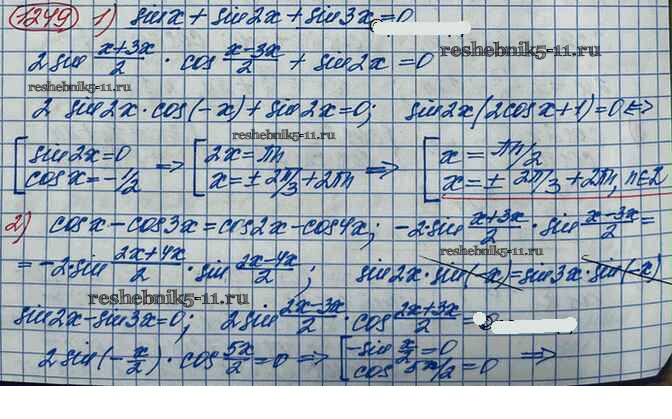 1249 1) sinx + sin2x + sin3x = 0
2sin (x+3x)/2 · cos (x-3x)/2 + sin2x = 0
reshebnik5-11.ru
reshebnik5-11.ru
2 sin2x·cos(-x) + sin2x = 0; sin2x(2cosx+1) = 0 <=>
reshebnik5-11.ru
[ sin2x = 0 => [ 2x = πn => [ x = πn/2
cosx = -1/2 x = ± 2π/3 + 2πn x = ± 2π/3 + 2πn, n∈Z
2) cosx - cos3x = cos2x - cos4x; -2·sin (x+3x)/2 · sin (x-3x)/2 =
reshebnik5-11.ru
= -2sin (2x+4x)/2 · sin (2x-4x)/2 ; sin2x·sin(-x) = sin3x·sin(-x)
reshebnik5-11.ru
sin2x - sin3x = 0; 2sin (2x-3x)/2 · cos (2x+3x)/2 =
2sin(-x/2) · cos 5x/2 = 0 => [ -sin x/2 = 0 =>
cos 5x/2 = 0